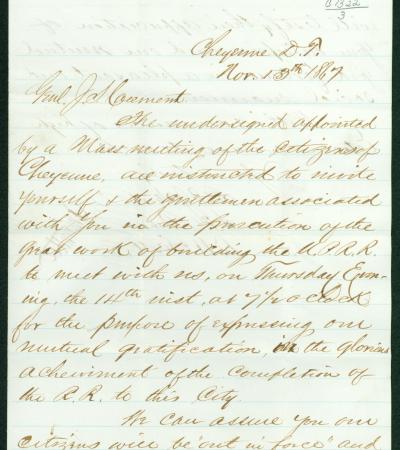 B1322
3
Cheyenne D. T.
Nov. 13th 1867
Genl. J. S. Casement
The undersigned appointed
by a Mass meeting of the citizens of
Cheyenne, are instructed to invite
yourself & the gentlemen associated
with you in the prosecution of the
great work of building the U.P.R.R.
to meet with us, on Thursday Even-
ing, the 14th inst, at 7½ o clock
for the purpose of expressing our
mutual gratification, the glorious
acheivment of the completion of
the R.R. to this City.
We can assure you our
citizens will be "out in force" and